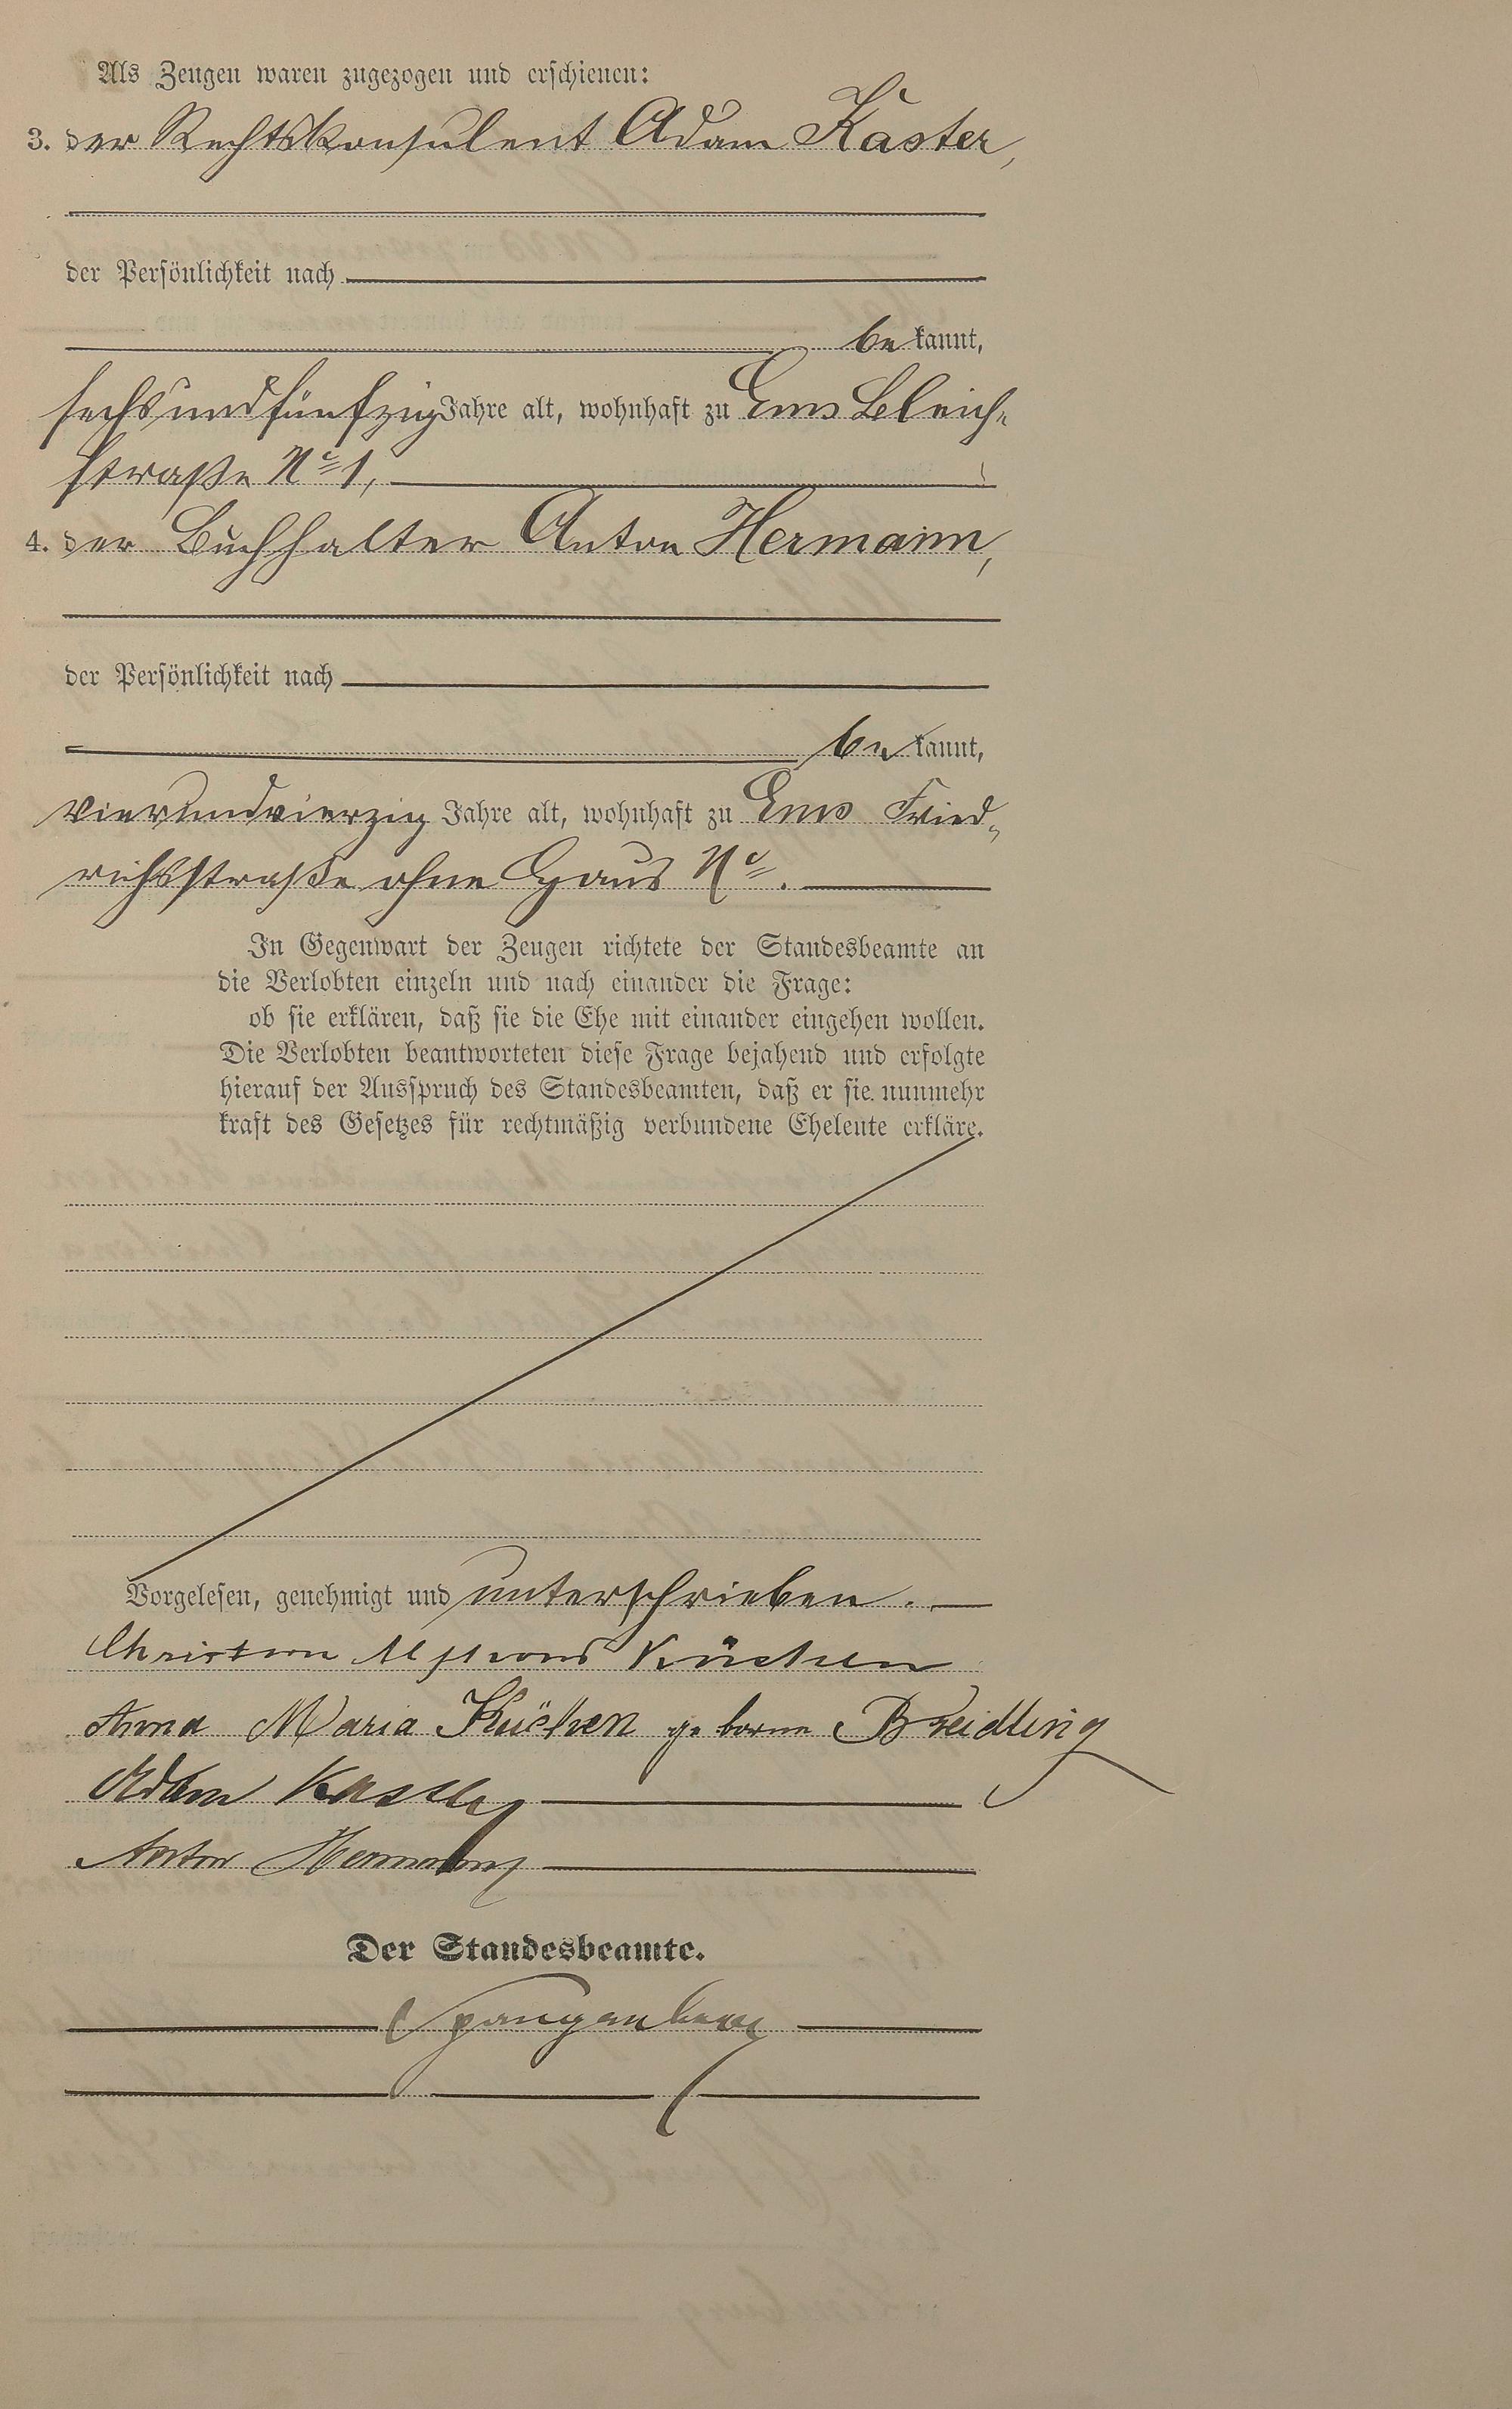 Als Zeugen waren zugezogen und erschienen:
3. der Rechtskonsulent Adam Kaster,
der Persönlichkeit nach
be kannt,
sechsundfünfzig Jahre alt, wohnhaft zu Ems Bleich-
straße No 1,
4. der Buchhalter Anton Hermann,
der Persönlichkeit nach
be kannt,
vierundvierzig Jahre alt, wohnhaft zu Ems Fried-
richsstraße ohne Haus No.
In Gegenwart der Zeugen richtete der Standesbeamte an
die Verlobten einzeln und nach einander die Frage:
ob sie erklären, daß sie die Ehe mit einander eingehen wollen.
Die Verlobten beantworteten diese Frage bejahend und erfolgte
hierauf der Ausspruch des Standesbeamten, daß er sie nunmehr
kraft des Gesetzes für rechtmäßig verbundene Eheleute erkläre.
Vorgelesen, genehmigt und unterschrieben.
Christian Küchen
Anna Maria Küchen geborne Breidling
Adam Kaster
Anton Hermann
Der Standesbeamte.
Spangenberg